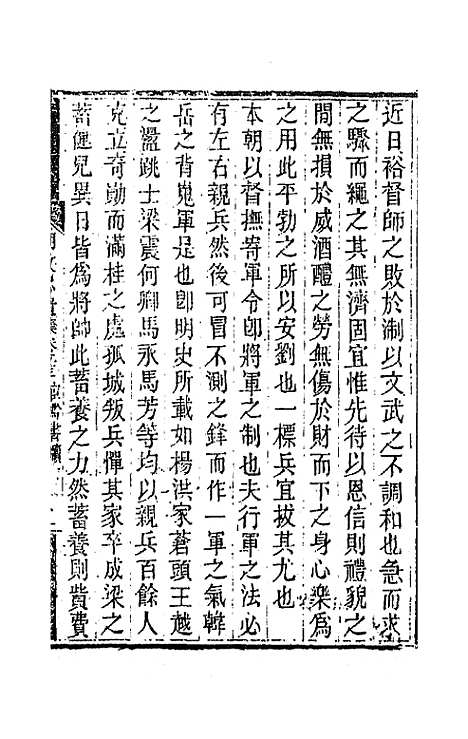 近日裕督師之敗於淛以文武之不調和也急而求
之驟而繩之其無濟固宜惟先待以恩信則禮貌之
間無損於威酒醴之勞無傷於財而下之身心樂為
之用此平勃之所以安劉也一標兵宜拔其尤也
本朝以督撫寄軍令卽將軍之制也夫行軍之法必
有左右親兵然後可冒不測之鋒而作一軍之氣韓
岳之背嵬軍是也卽明史所載如楊洪家蒼頭王越
之盪跳士梁震何卿馬永馬芳等均以親兵百餘人
克立奇勛而滿桂之處孤城叛兵憚其家卒成梁之
蓄健兒異日皆為將帥此蓄養之力然蓄養則貲費